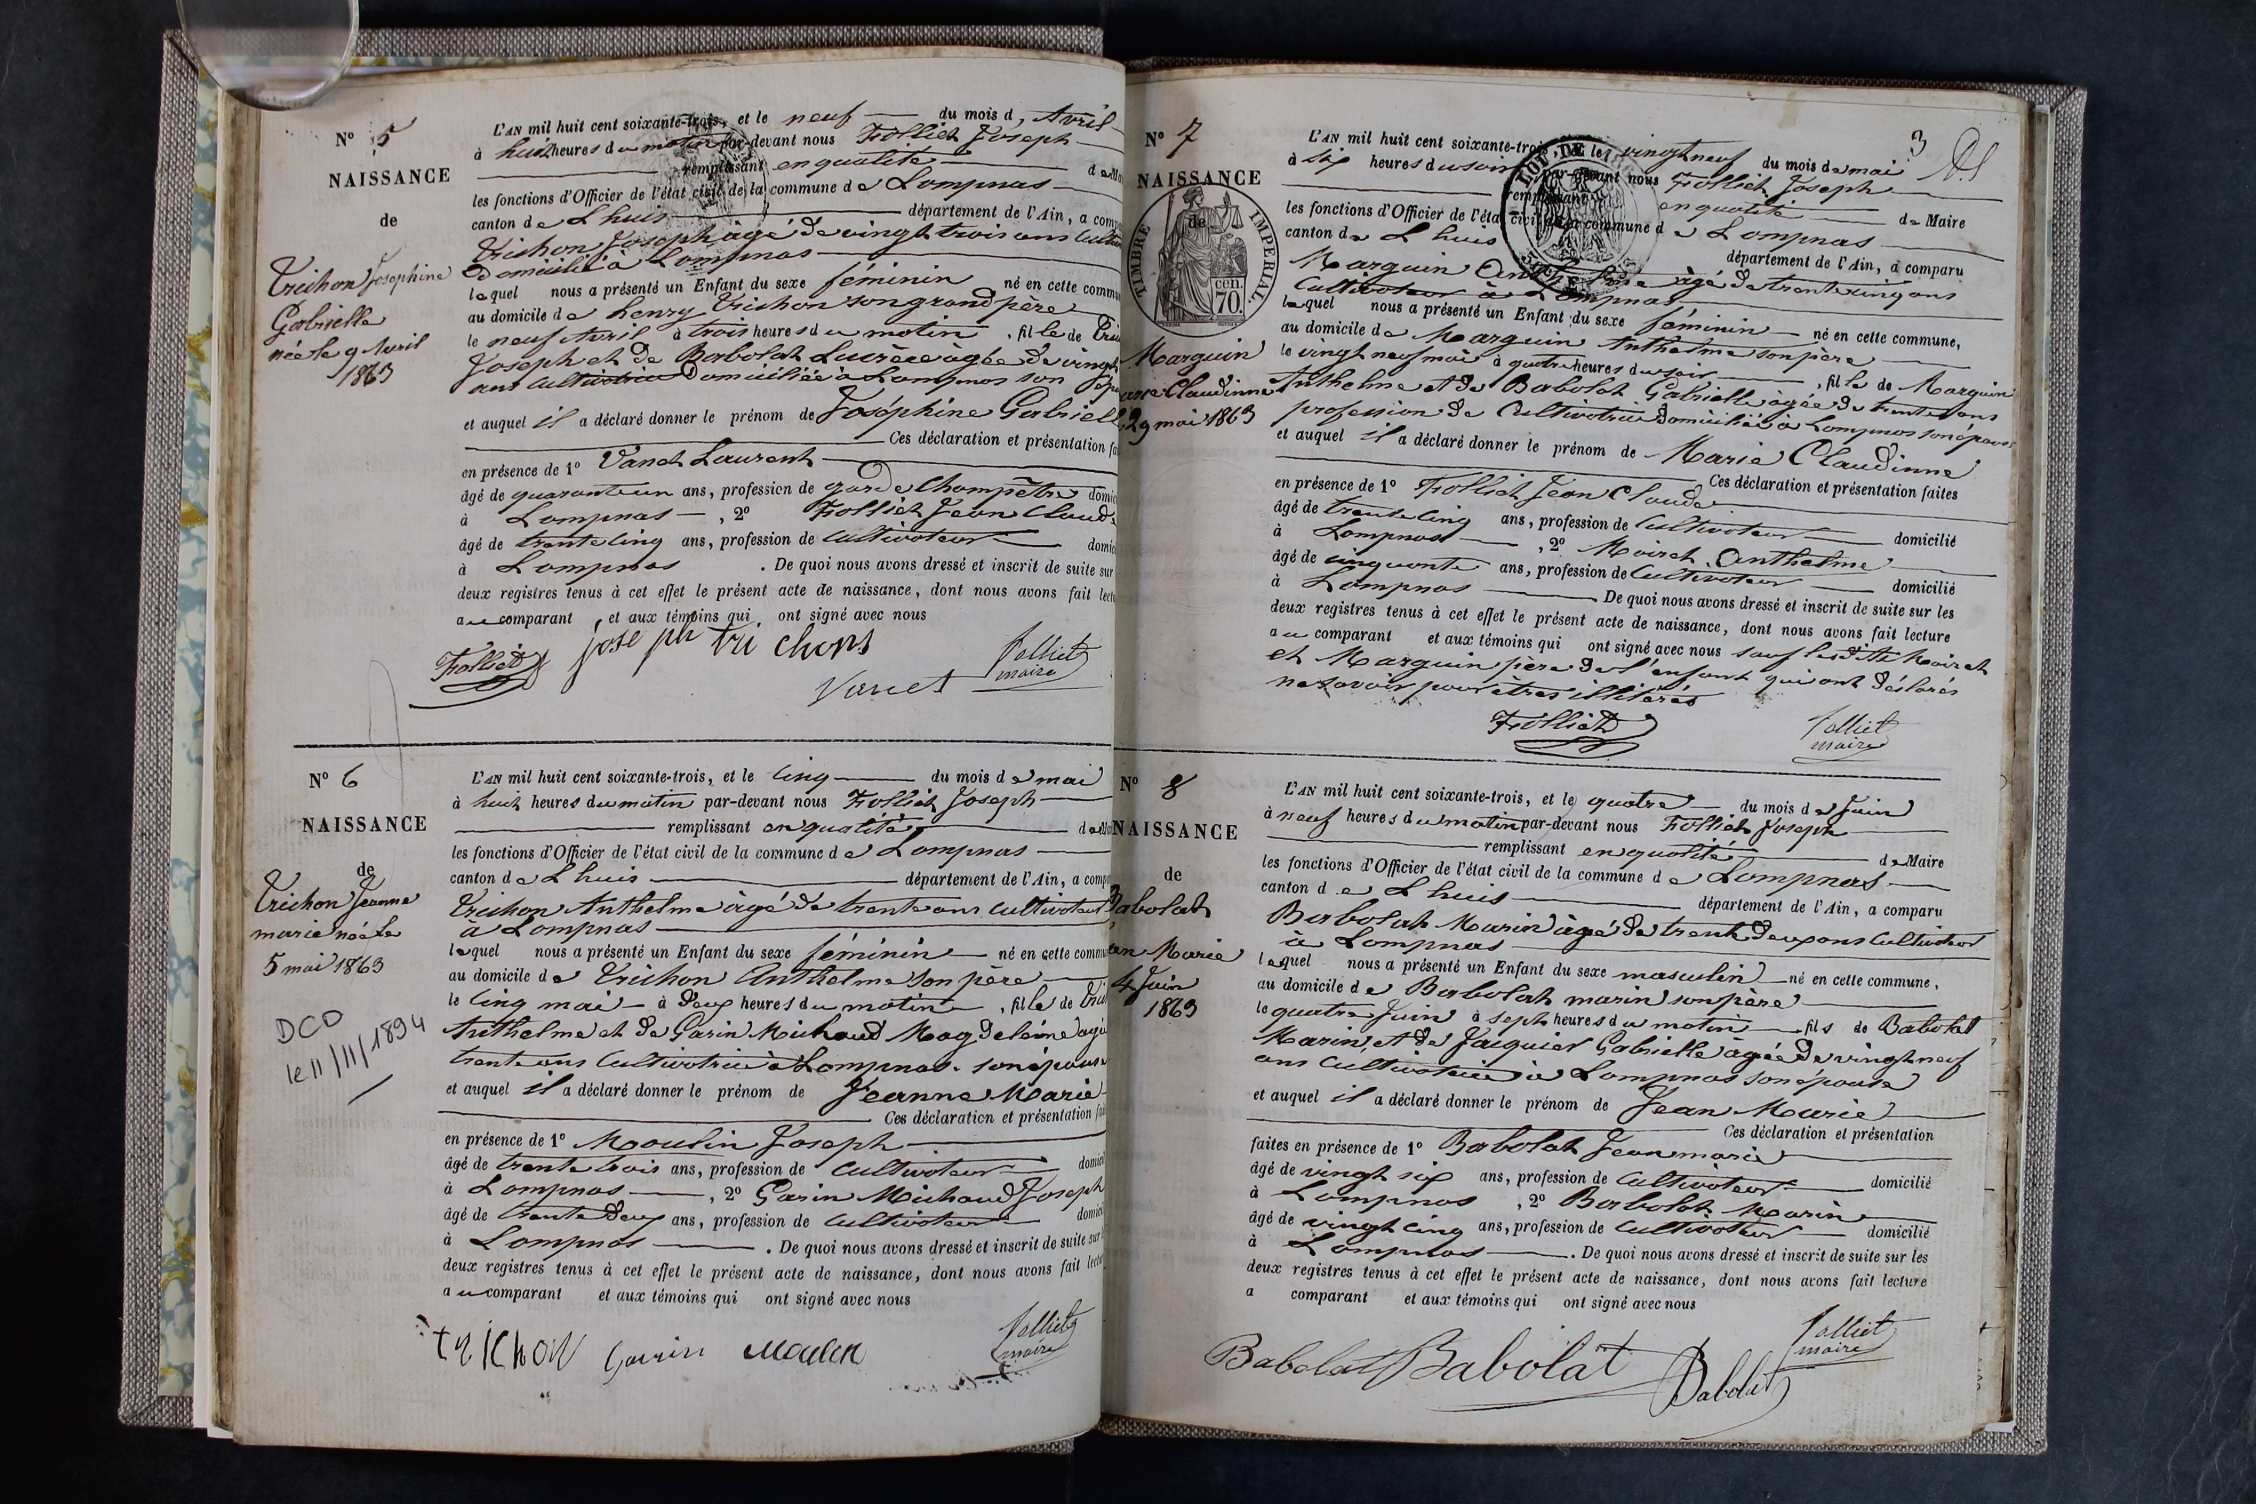 N° 5
NAISSANCE
de
Trichon Josephine
Gabrielle
née le 9 Avril
1863
L'AN mil huit cent soixante-trois, et le neuf du mois d, Avril
à huit heures du matin par-devant nous Folliet Joseph
remplissant en qualité de Ma
les fonctions d'Officier de l'état civil de la commune de Lompnas
canton de Lhuis département de l'Ain, a comp
Trichon Joseph agé de vingt trois ans Cultiv
Domicilié à Lompnas
lequel nous a présenté un Enfant du sexe féminin né en cette commu
au domicile de henry Trichon son grand père
le neuf Avril à trois heures du matin, fille de Tric
Joseph et de Babolat Lucrèce âgée de vingt
ans cultivatrice Domiciliée à Lompnas son épou
et auquel il a déclaré donner le prénom de Joséphine Gabriell
Ces déclaration et présentation fai
en présence de 1° Vanet Laurent
âgé de quarante un ans, profession de garde Champêtre domic
à Lompnas, 2° Folliet Jean Claude
âgé de trente cinq ans, profession de cultivateur domic
à Lompnas. De quoi nous avons dressé et inscrit de suite sur
deux registres tenus à cet effet le présent acte de naissance, dont nous avons fait lectu
au comparant et aux témoins qui ont signé avec nous
Folliet joseph trichons Folliet
maire
Vanet
N° 6
NAISSANCE
de
Trichon Jeanne
marie née le
5 mai 1863
DCD
le 11/11/1894
L'AN mil huit cent soixante-trois, et le cinq du mois de mai
à huit heures du matin par-devant nous Folliet Joseph
remplissant en qualité de Ma
les fonctions d'Officier de l'état civil de la commune de Lompnas
canton de Lhuis département de l'Ain, a comp
Trichon Anthelme âgé de trente ans cultivateur
à Lompnas
lequel nous a présenté un Enfant du sexe féminin né en cette commu
au domicile de Trichon Anthelme son père
le cinq mai à deux heures du matin, fille de Tric
Anthelme et de Garin Michaud Magdeleine agé
trente ans Cultivatrice à Lompnas. son épouse
et auquel il a déclaré donner le prénom de Jeanne Marie
Ces déclaration et présentation fai
en présence de 1° Moulin Joseph
âgé de trente trois ans, profession de cultivateur domicil
à Lompnas, 2° Garin Michaud Joseph
âgé de trente deux ans, profession de cultivateur domici
à Lompnas. De quoi nous avons dressé et inscrit de suite sur
deux registres tenus à cet effet le présent acte de naissance, dont nous avons fait lectu
au comparant et aux témoins qui ont signé avec nous
Folliet
maire
trichon Garin Moulin
3
N° 7
NAISSANCE
de
TIMBRE IMPERIAL.
cen.
70.
Marguin
arie Claudinne
29 mai 1863
L'AN mil huit cent soixante-trois, et le vingt neuf du mois de mai
à six heures du soir par-devant nous Folliet Joseph
remplissant en qualité de Maire
les fonctions d'Officier de l'état civil de la commune de Lompnas
canton de Lhuis département de l'Ain, a comparu
Marguin Anthelme âgé de trente cinq ans
Cultivateur à Lompnas
lequel nous a présenté un Enfant du sexe féminin né en cette commune,
au domicile de Marguin Anthelme son père
le vingt neuf mai à quatre heures du soir, fille de Marguin
Anthelme et de Babolat Gabrielle agée de trente ans
profession de Cultivatrice domiciliée à Lompnas son épouse
et auquel il a déclaré donner le prénom de Marie Claudinne
Ces déclaration et présentation faites
en présence de 1° Folliet Jean Claude
âgé de trente cinq ans, profession de Cultivateur domicilié
à Lompnas, 2° Moiret Anthelme
âgé de cinquante ans, profession de Cultivateur domicilié
à Lompnas De quoi nous avons dressé et inscrit de suite sur les
deux registres tenus à cet effet le présent acte de naissance, dont nous avons fait lecture
au comparant et aux témoins qui ont signé avec nous sauf les dits Moiret
et Marguin père de l'enfant qui ont déclarés
ne savoir pour être illitérés
Folliet Folliet
maire
N° 8
NAISSANCE
de
Babolat
an Marie
4 Juin
1863
L'AN mil huit cent soixante-trois, et le quatre du mois de Juin
à neuf heures du matin par-devant nous Folliet Joseph
remplissant en qualité de Maire
les fonctions d'Officier de l'état civil de la commune de Lompnas
canton de Lhuis département de l'Ain, a comparu
Babolat Marin âgé de trente deux ans Cultivateur
à Lompnas
lequel nous a présenté un Enfant du sexe masculin né en cette commune,
au domicile de Babolat marin son père
le quatre Juin à sept heures du matin fils de Babolat
Marin et de Jaiquier Gabrielle âgée de vingt neuf
ans Cultivatrice à Lompnas son épouse
et auquel il a déclaré donner le prénom de Jean Marie
Ces déclaration et présentation
faites en présence de 1° Babolat Jean marie
âgé de vingt six ans, profession de Cultivateur domicilié
à Lompnas, 2° Babolat Marin
âgé de vingt cinq ans, profession de Cultivateur domicilié
à Lompnas. De quoi nous avons dressé et inscrit de suite sur les
deux registres tenus à cet effet le présent acte de naissance, dont nous avons fait lecture
a comparant et aux témoins qui ont signé avec nous
Folliet
maire
Babolat Babolat Babolat